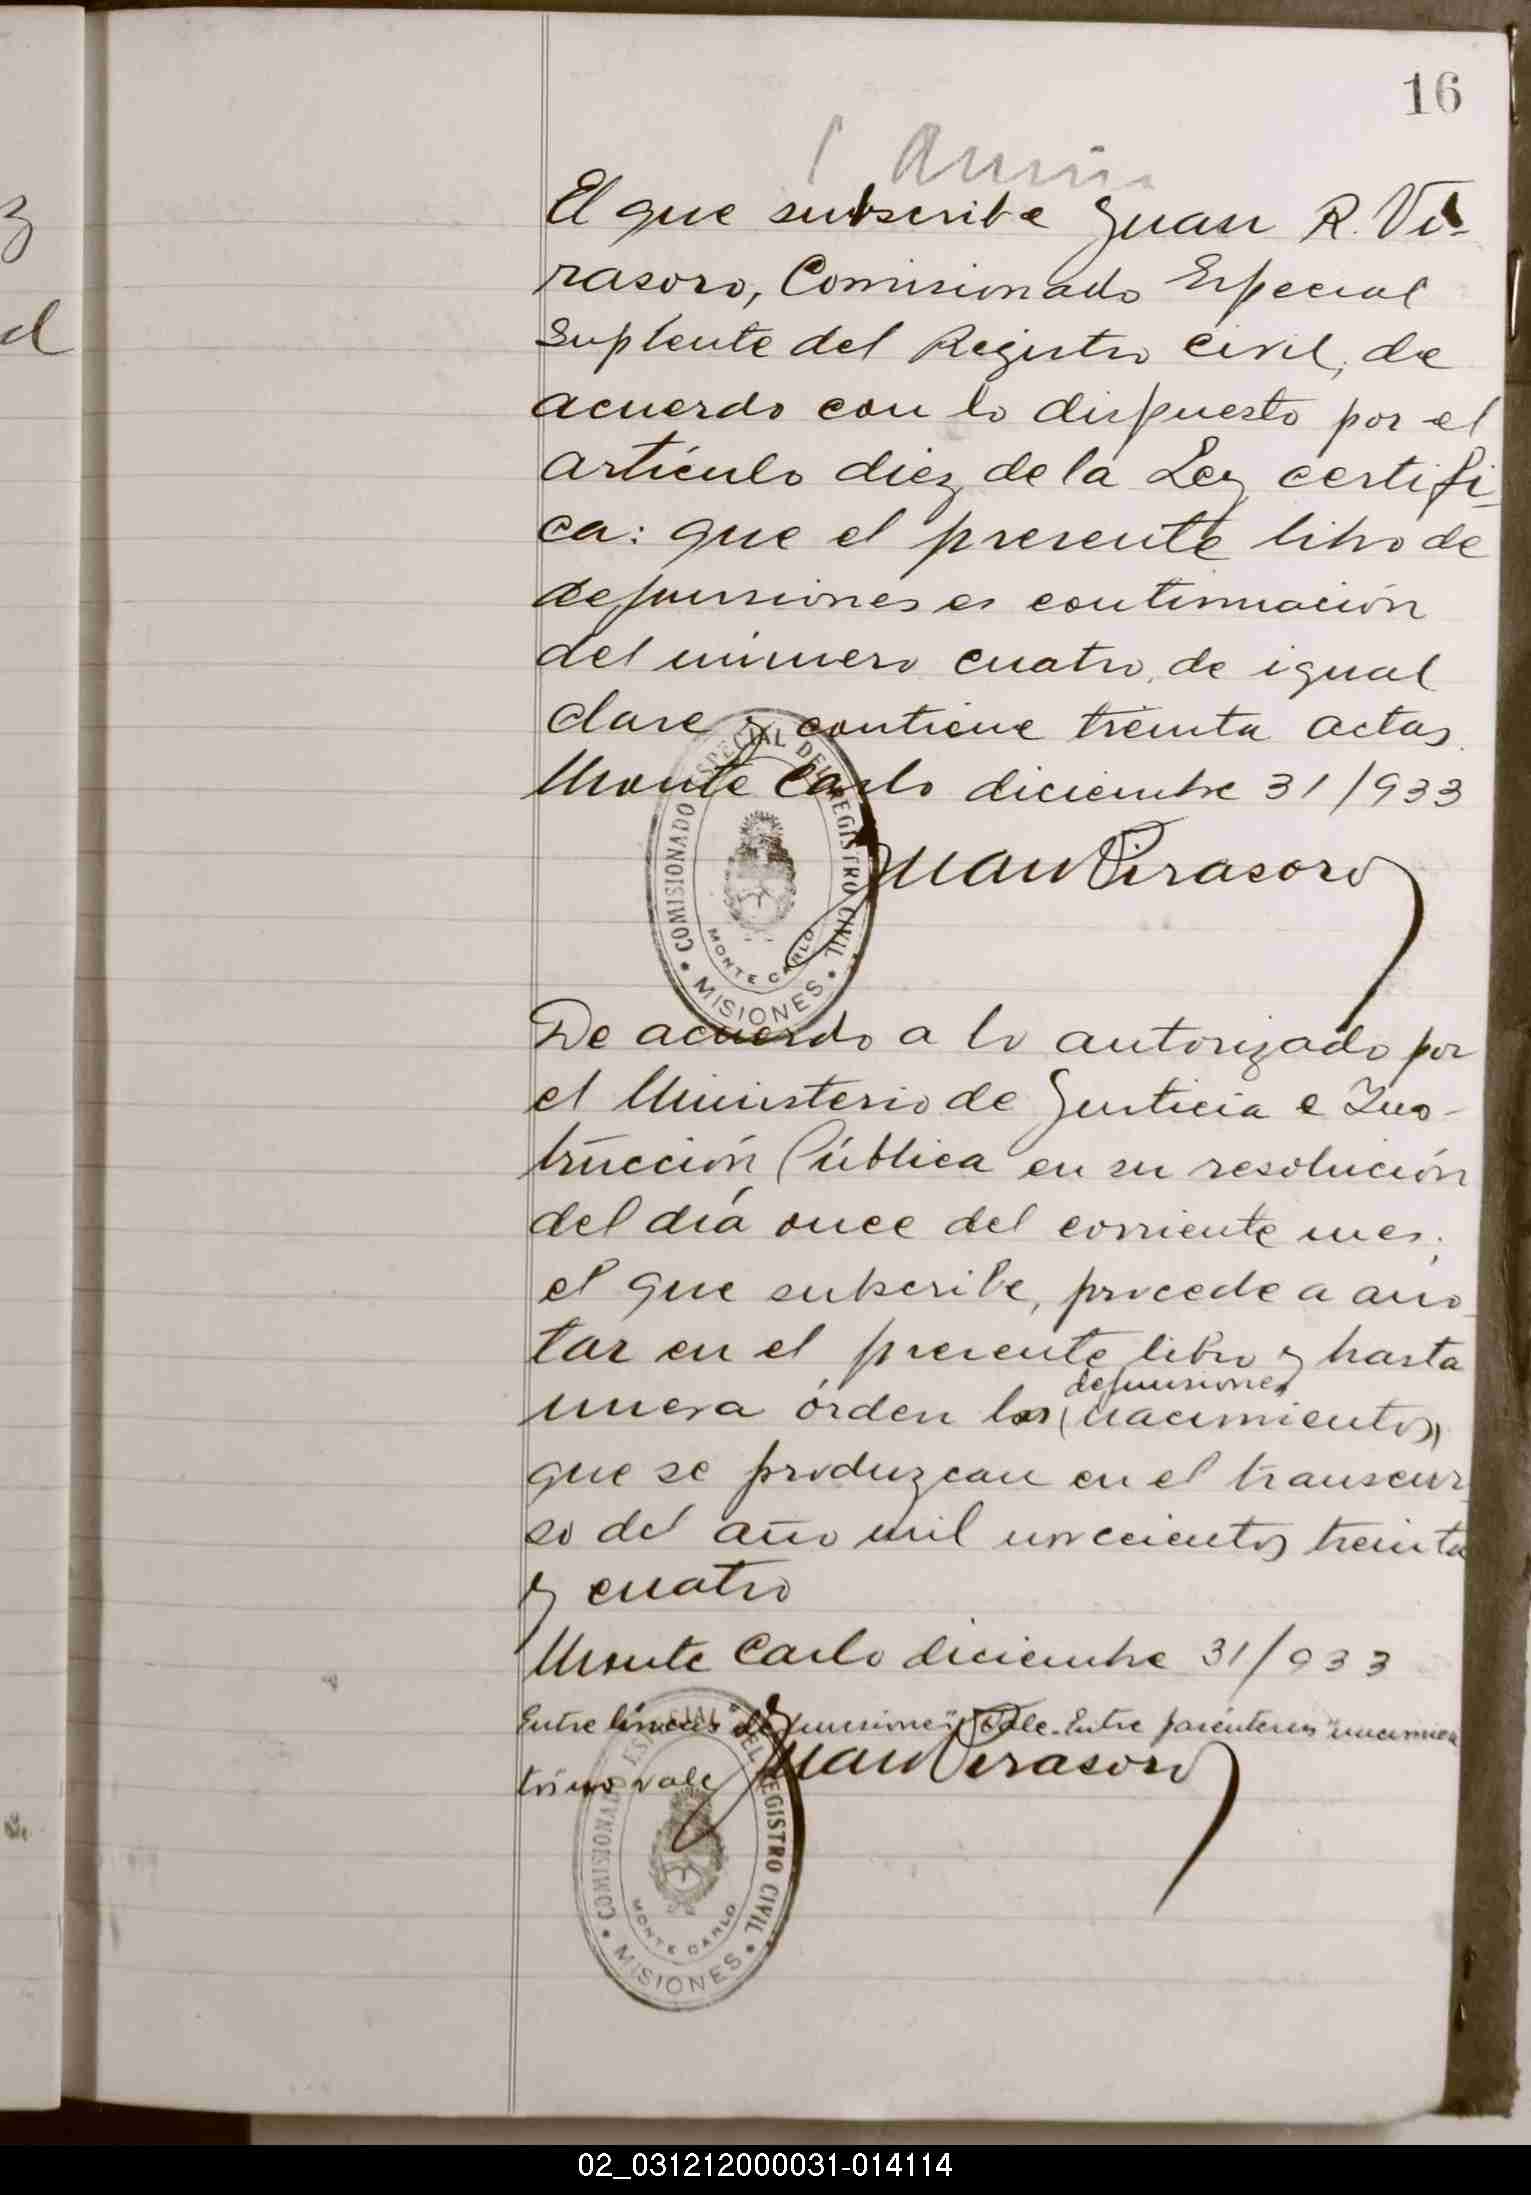 16
El que subscribe Juan R. Vi-
rasoro, Comisionado Especial
Suplente del Registro civil, de
acuerdo con lo dispuesto por el
artículo diez de la Ley certifi-
ca: que el presente libro de
defunsiones es continuación
del número cuatro, de igual
clase y contiene treinta actas.
Monte Carlo diciembre 31/933
Juan Virasoro
COMISIONADO ESPECIAL DEL REGISTRO CIVIL
MONTE CARLO
• MISIONES •
De acuerdo a lo autorizado por
el Ministerio de Justicia e Ins-
trucción Pública en su resolución
del día once del corriente mes;
el que subscribe, procede a ano-
tar en el presente libro y hasta
defunsiones
nueva órden las (nacimientos)
que se produzcan en el transcur-
so del año mil novecientos treinta
y cuatro
Monte Carlo diciembre 31/933
Entre líneas "defunsiones" Vale. Entre paréntesis "nacimien
tos" no vale
Juan Virasoro
COMISIONADO ESPECIAL DEL REGISTRO CIVIL
MONTE CARLO
• MISIONES •
02_031212000031-014114